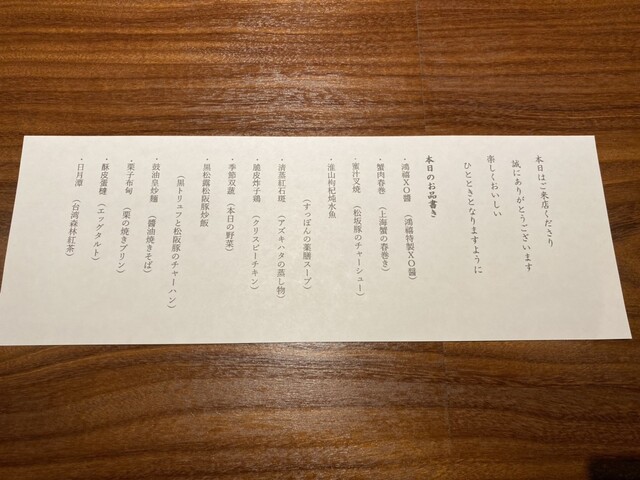 本日はご来店くださり
誠にありがとうございます
楽しくおいしい
ひとときとなりますように
本日のお品書き
・鴻禧XO醤　（鴻禧特製XO醤）
・蟹肉春巻　（上海蟹の春巻き）
・蜜汁叉焼　（松坂豚のチャーシュー）
・淮山枸杞燉水魚
（すっぽんの薬膳スープ）
・清蒸紅石斑　（アズキハタの蒸し物）
・脆皮炸子鶏　（クリスピーチキン）
・季節双蔬　（本日の野菜）
・黒松露松阪豚炒飯
（黒トリュフと松阪豚のチャーハン）
・豉油皇炒麺　（醤油焼きそば）
・栗子布甸　（栗の焼きプリン）
・酥皮蛋撻　（エッグタルト）
・日月潭　（台湾森林紅茶）